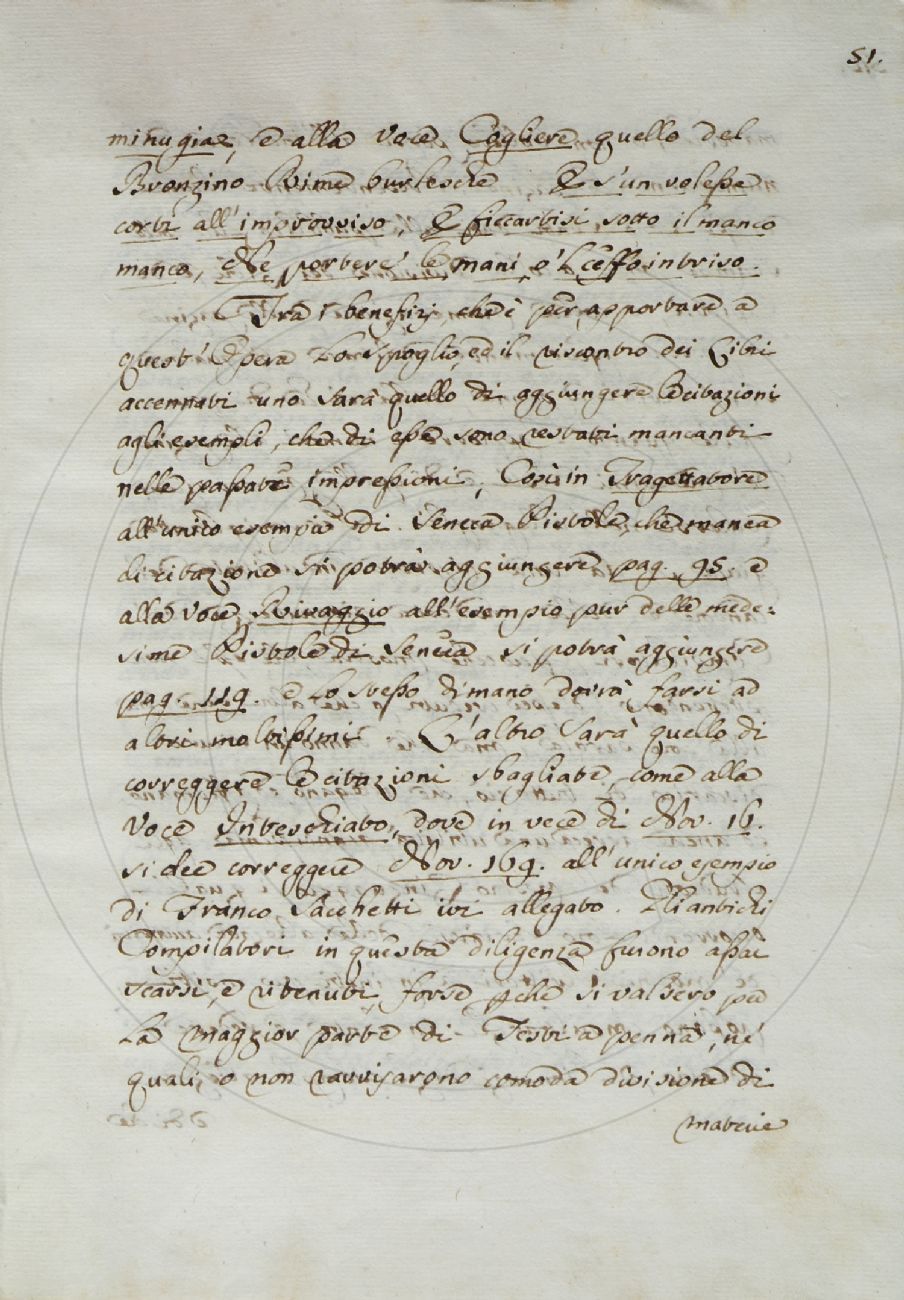 51.
minugia, e alla voce Cogliere quello del
Bronzino Rime burlesche E s'un volesse
corvi all'improvviso, E ficcarvisi sotto il manco
manco, Che portere' le mani, e 'l ceffo intriso.
Tra i benefizj, che è per apportare a
quest'Opera lo spoglio, ed il riscontro dei Libri
accennati uno sarà quello di aggiungere le citazioni
agli esempli, che di esse sono restati mancanti
nelle passate impressioni, Così in Tragettatore
all'unico esempio di Seneca Pistole, che manca
di citazione si potrà aggiungere pag. 95. e
alla voce Rivaggio all'esempio pur delle mede:
sime Pistole di Seneca si potrà aggiungere
pag. 119. e lo stesso di mano dovrà farsi ad
altri moltissimi. L'altro sarà quello di
correggere le citazioni sbagliate, come alla
Voce Inteschiato, dove in vece di Nov. 16.
si dee correggere Nov. 169. all'unico esempio
di Franco Sacchetti ivi allegato. Gli antichi
Compilatori in questa diligenza furono assai
scarsi, e ritenuti, forse perche si valsero per
la maggior parte di Testi a penna, ne'
quali, o non ravvisarono comoda divisione di
materie